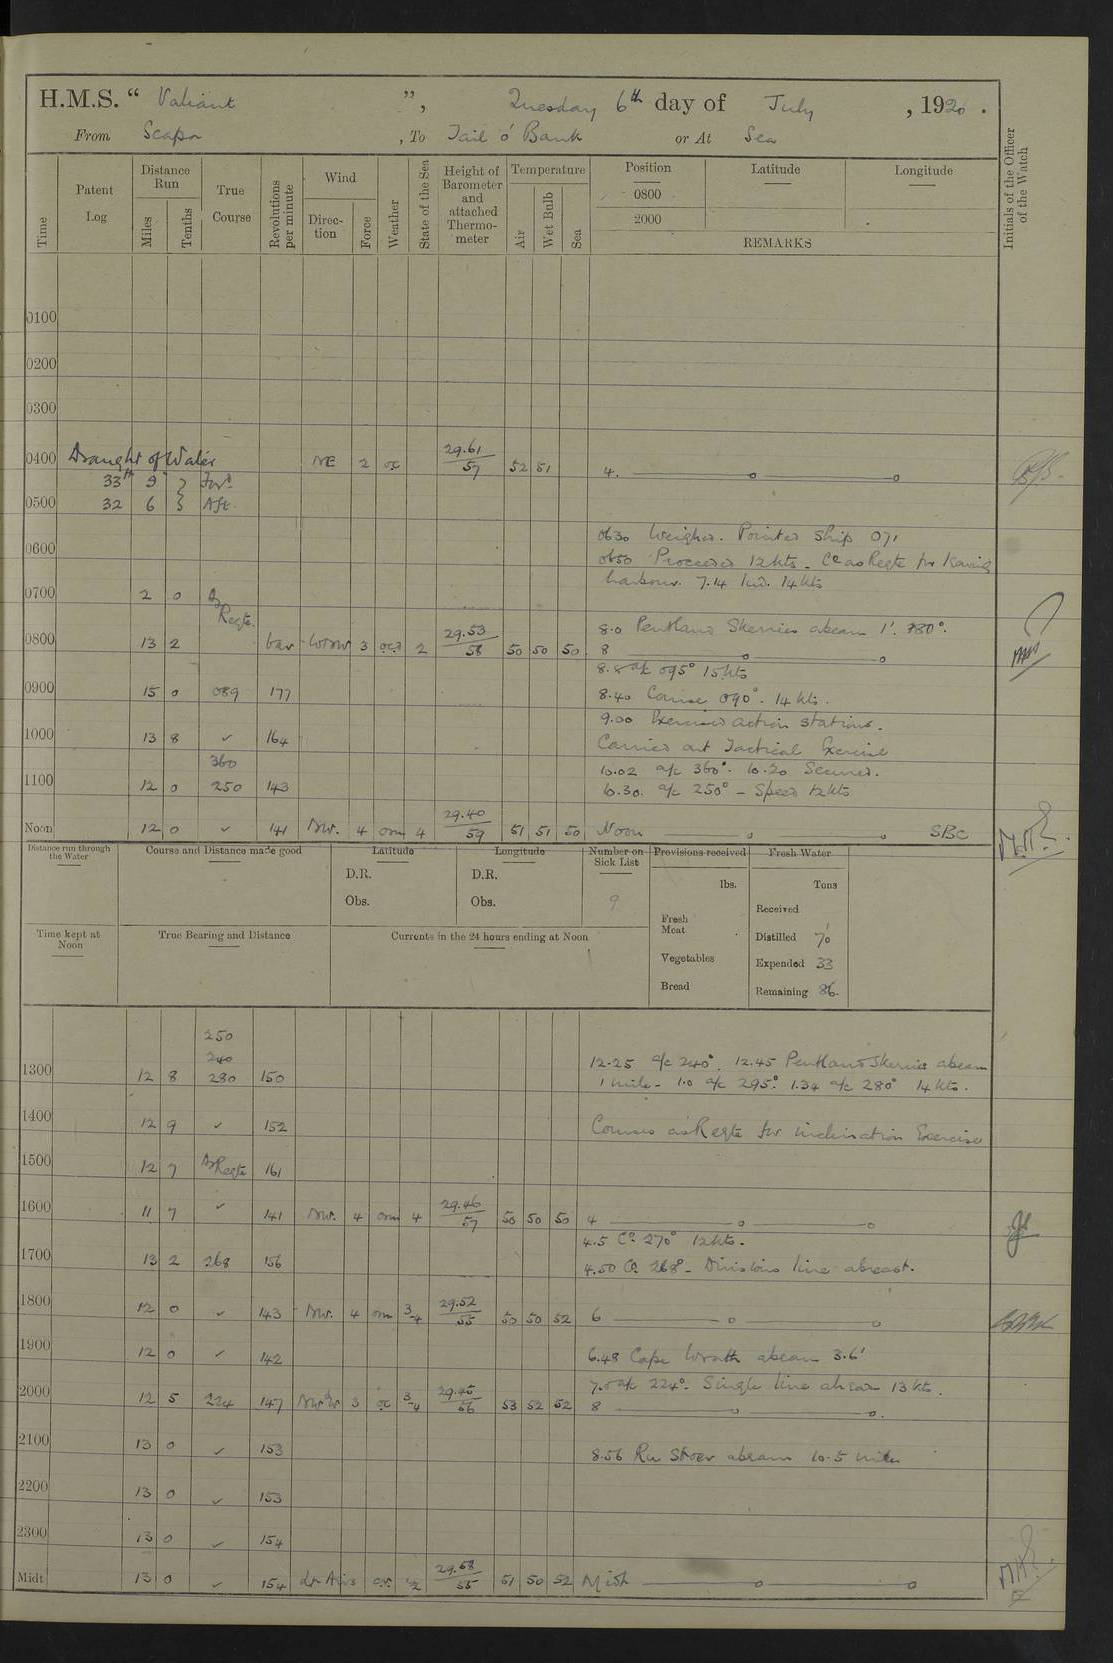 H.M.S. “ Valiant ”, Tuesday 6th day of July , 1920 .
From Scapa , To Tail o' Bank or At Sea
Time
Patent Log
Distance Run
Miles
Tenths
True Course
Revolutions per minute
Wind
Direc-tion
Force
Weather
State of the Sea
Height of Barometer and attached Thermo-meter
Temperature
Air
Wet Bulb
Sea
Position
0800
2000
Latitude
Longitude
REMARKS
Initials of the Officer of the Watch
0100
0200
0300
0400 Draught of Water NE 2 oc 29.61 57 52 51 4.
33 ft 9 } For'd
0500 32 6 } Aft
0630 Weighed. Pointed Ship 071
0600 0650 Proceeded 12 kts. Co as Reqte for leaving
harbour. 7.14 14 kts
0700 2 0 As Reqte.
8.0 Pentland Skerries abeam 1'. 180°.
0800 13 2 var 3 2 29.53 58 50 50 50 8
8.8 a/c 095° 15 kts
0900 15 0 089 177 8.40 Course 090°. 14 kts.
9.00 Exercised action stations.
1000 13 8 ✓ 164 Carried out Tactical Exercise
360 10.02 a/c 360°. 10.20 Secured.
1100 12 0 250 143 10.30. a/c 250° - Speed 12 kts
Noon 12 0 ✓ 141 NW. 4 om 4 29.40 59 51 51 50 Noon SBC
Distance run through the Water
Course and Distance made good
Latitude
D.R.
Obs.
Longitude
D.R.
Obs.
Number on Sick List
9
Provisions received
lbs.
Fresh Meat
Vegetables
Bread
Fresh Water
Tons
Received
Distilled 70
Expended 33
Remaining 86.
Time kept at Noon
True Bearing and Distance
Currents in the 24 hours ending at Noon
250
240 12.25 a/c 240°. 12.45 Pentland Skerries abeam
1300 12 8 280 150 1 mile - 1.0 a/c 295°. 1.34 a/c 280° 14 kts.
1400 12 9 ✓ 152 Courses as Reqte for inclination Exercise
1500 12 7 As Reqte 161
1600 11 7 ✓ 141 NW. 4 om 4 29.46 57 50 50 50 4
4.5 Co. 270° 12 kts.
1700 13 2 268 156 4.50 Co. 268° - Divisions line abreast.
1800 12 0 ✓ 143 NW. 4 om 3-4 29.52 55 50 50 52 6
1900 12 0 ✓ 142 6.48 Cape Wrath abeam 3.6'
7.0 a/c 224°. Single line ahead 13 kts.
2000 12 5 224 147 NW'W 3 oc 3-4 29.45 56 53 52 52 8
2100 13 0 ✓ 153 8.56 Ru Stoer abeam 10.5 miles
2200 13 0 ✓ 153
2300 13 0 ✓ 154
Midt 13 0 ✓ 154 Lt Airs 29.58 55 51 50 52 Midt